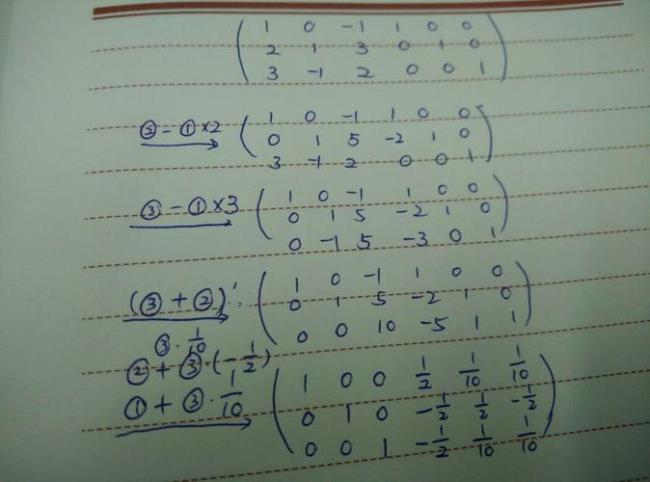 1 0 -1 1 0 0
2 1 3 0 1 0
3 -1 2 0 0 1
②-①×2 1 0 -1 1 0 0
0 1 5 -2 1 0
3 -1 2 0 0 1
③-①×3 1 0 -1 1 0 0
0 1 5 -2 1 0
0 -1 5 -3 0 1
(③+②) 1 0 -1 1 0 0
0 1 5 -2 1 0
0 0 10 -5 1 1
③·1/10
②+③·(-1/2)
①+③·1/10 1 0 0 1/2 1/10 1/10
0 1 0 -1/2 1/2 -1/2
0 0 1 -1/2 1/10 1/10